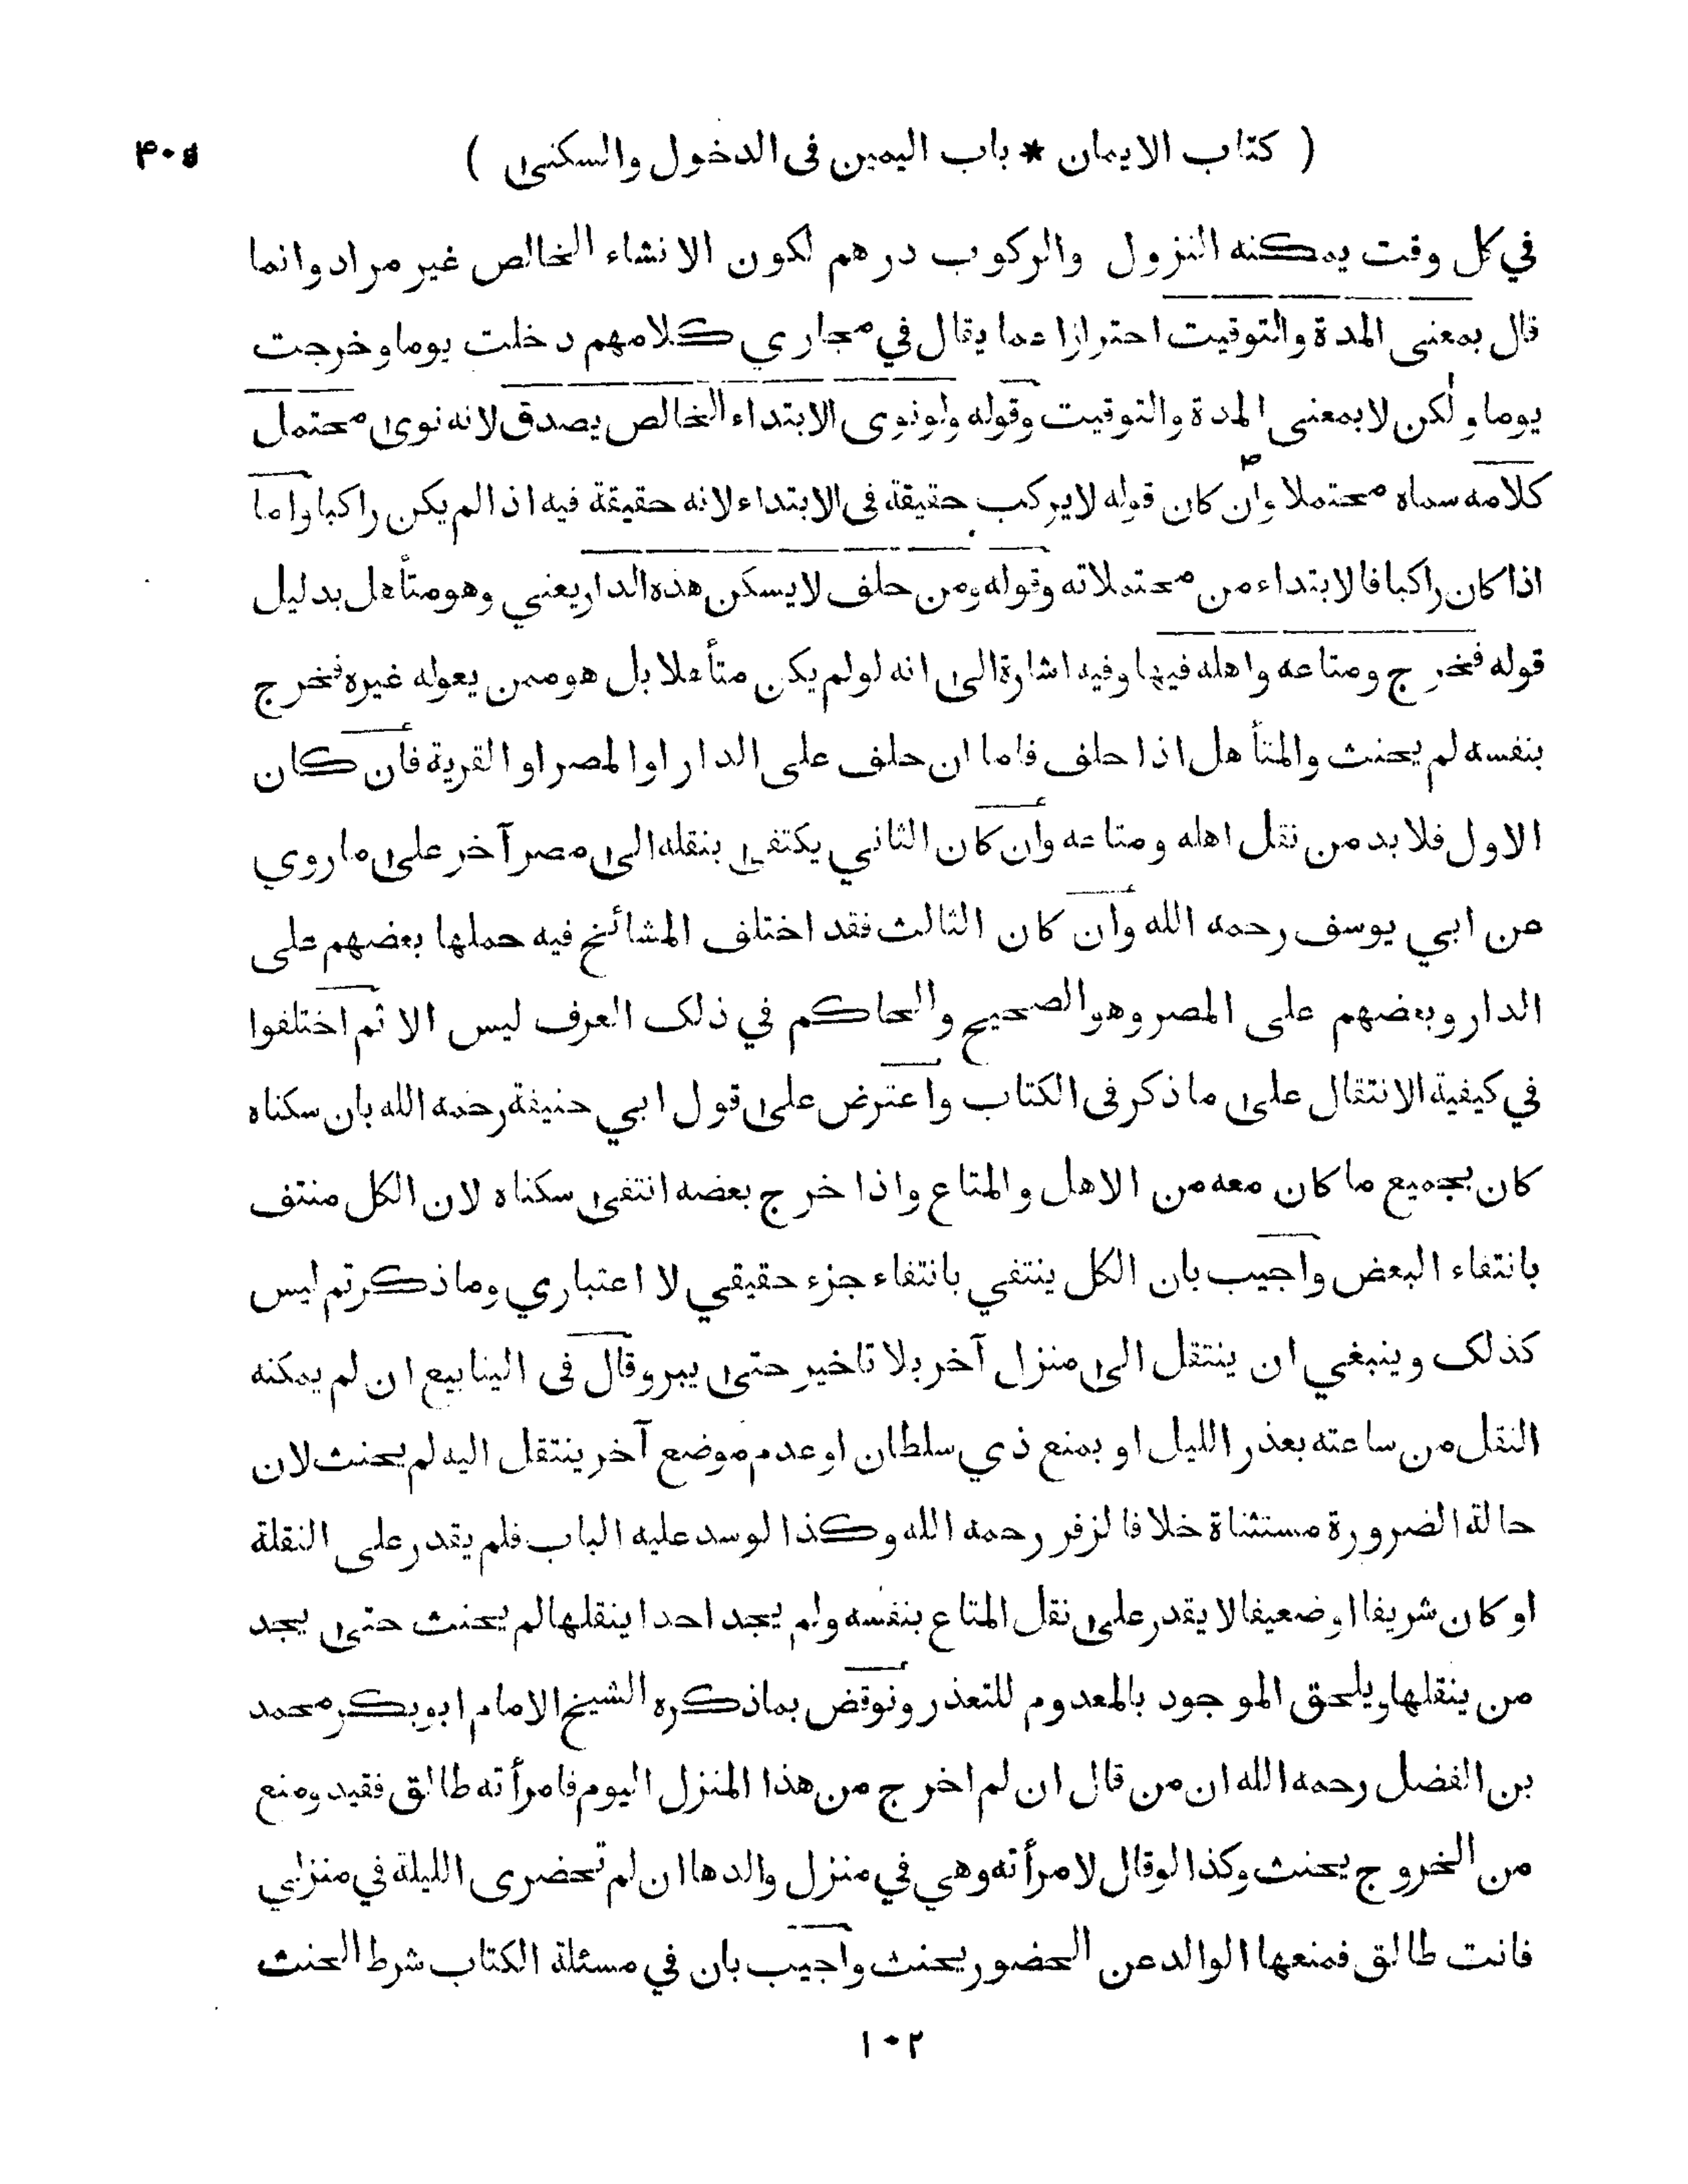 ( كتاب الايمان * باب اليمين فى الدخول والسكنى )
۴۰۵
في كل وقت يمكنه النزول والركوب درهم لكون الانشاء الخالص غير مراد وانما
قال بمعنى المدة والتوقيت احترازا عما يقال في مجاري كلامهم دخلت يوما وخرجت
يوما ولكن لا بمعنى المدة والتوقيت وقوله ولونوى الابتداء الخالص يصدق لانه نوى محتمل
كلامه سماه محتملا وان كان قوله لايركب حقيقة فى الابتداء لانه حقيقة فيه اذا لم يكن راكبا واما
اذا كان راكبا فالابتداء من محتملاته وقوله ومن حلف لا يسكن هذه الدار يعني وهو متأهل بدليل
قوله فخرج ومتاعه واهله فيها وفيه اشارة الى انه لو لم يكن متأهلا بل هو ممن يعوله غيره فخرج
بنفسه لم يحنث والمتأهل اذا حلف فاما ان حلف على الدار او المصر او القرية فأن كان
الاول فلا بد من نقل اهله ومتاعه وأن كان الثاني يكتفى بنقله الى مصر آخر على ما روي
عن ابي يوسف رحمه الله وأن كان الثالث فقد اختلف المشائخ فيه حملها بعضهم على
الدار وبعضهم على المصر وهو الصحيح والحاكم في ذلك العرف ليس الا ثم اختلفوا
في كيفية الانتقال على ما ذكر فى الكتاب واعترض على قول ابي حنيفة رحمه الله بان سكناه
كان بجميع ما كان معه من الاهل والمتاع واذا خرج بعضه انتفى سكناه لان الكل منتف
بانتفاء البعض وأجيب بان الكل ينتفي بانتفاء جزء حقيقي لا اعتباري وما ذكرتم ليس
كذلك وينبغي ان ينتقل الى منزل آخر بلا تاخير حتى يبر وقال فى الينابيع ان لم يمكنه
النقل من ساعته بعذر الليل او بمنع ذي سلطان او عدم موضع آخر ينتقل اليه لم يحنث لان
حالة الضرورة مستثناة خلافا لزفر رحمه الله وكذا لو سد عليه الباب فلم يقدر على النقلة
او كان شريفا او ضعيفا لا يقدر على نقل المتاع بنفسه ولم يجد احدا ينقلها لم يحنث حتى يجد
من ينقلها ويلحق الموجود بالمعدوم للتعذر ونوقض بما ذكره الشيخ الامام ابو بكر محمد
بن الفضل رحمه الله ان من قال ان لم اخرج من هذا المنزل اليوم فامرأته طالق فقيد ومنع
من الخروج يحنث وكذا لو قال لامرأته وهي في منزل والدها ان لم تحضرى الليلة في منزلي
فانت طالق فمنعها الوالد عن الحضور يحنث وأجيب بان في مسئلة الكتاب شرط الحنث
۱۰۲